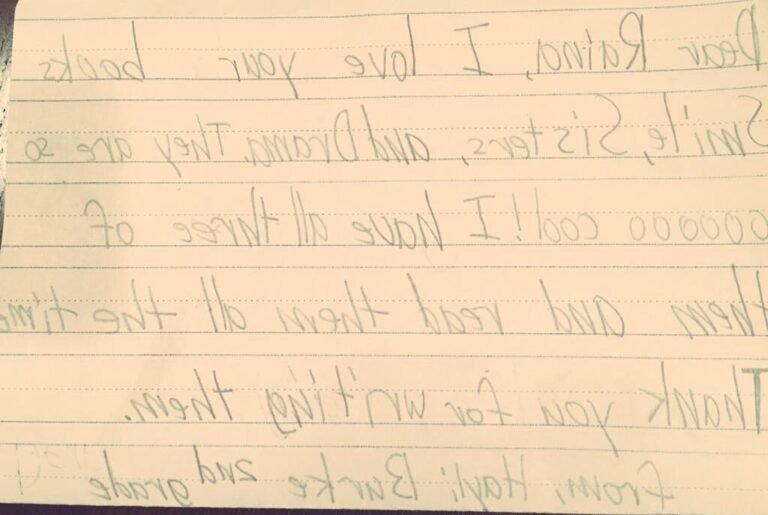 Dear Raina, I love your books
Smile, Sisters, and Drama. They are so
oooooo cool! I have all three of
them and read them all the time
Thank you for writing them.
from, Hayli Burke 2nd grade